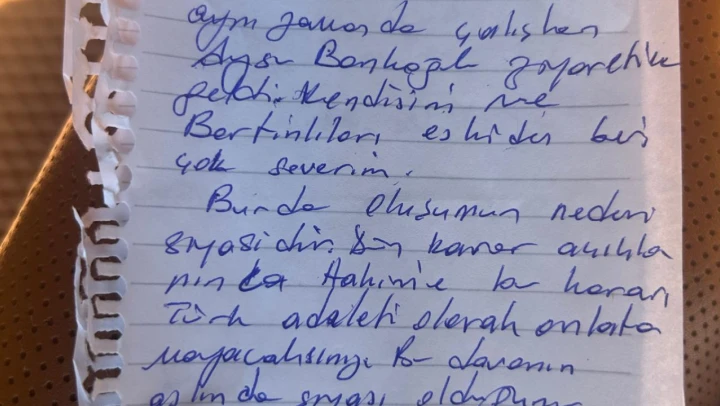 aynı zamanda çalışkan
Aysu Bankoğlu ziyaretime
geldi. Kendisini ve
Bartınlıları eskiden beri
çok severim.
Burda oluşumun nedeni
siyasidir. Son karar açıkla
nınca Hakim'e bu kararı
Türk adaleti olarak anlata
mayacaksınız bu davanın
aslında siyasi olduğunu